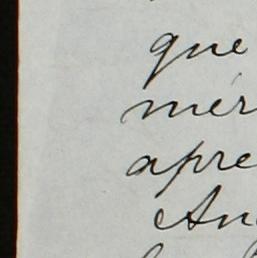 que
mer
apre
An